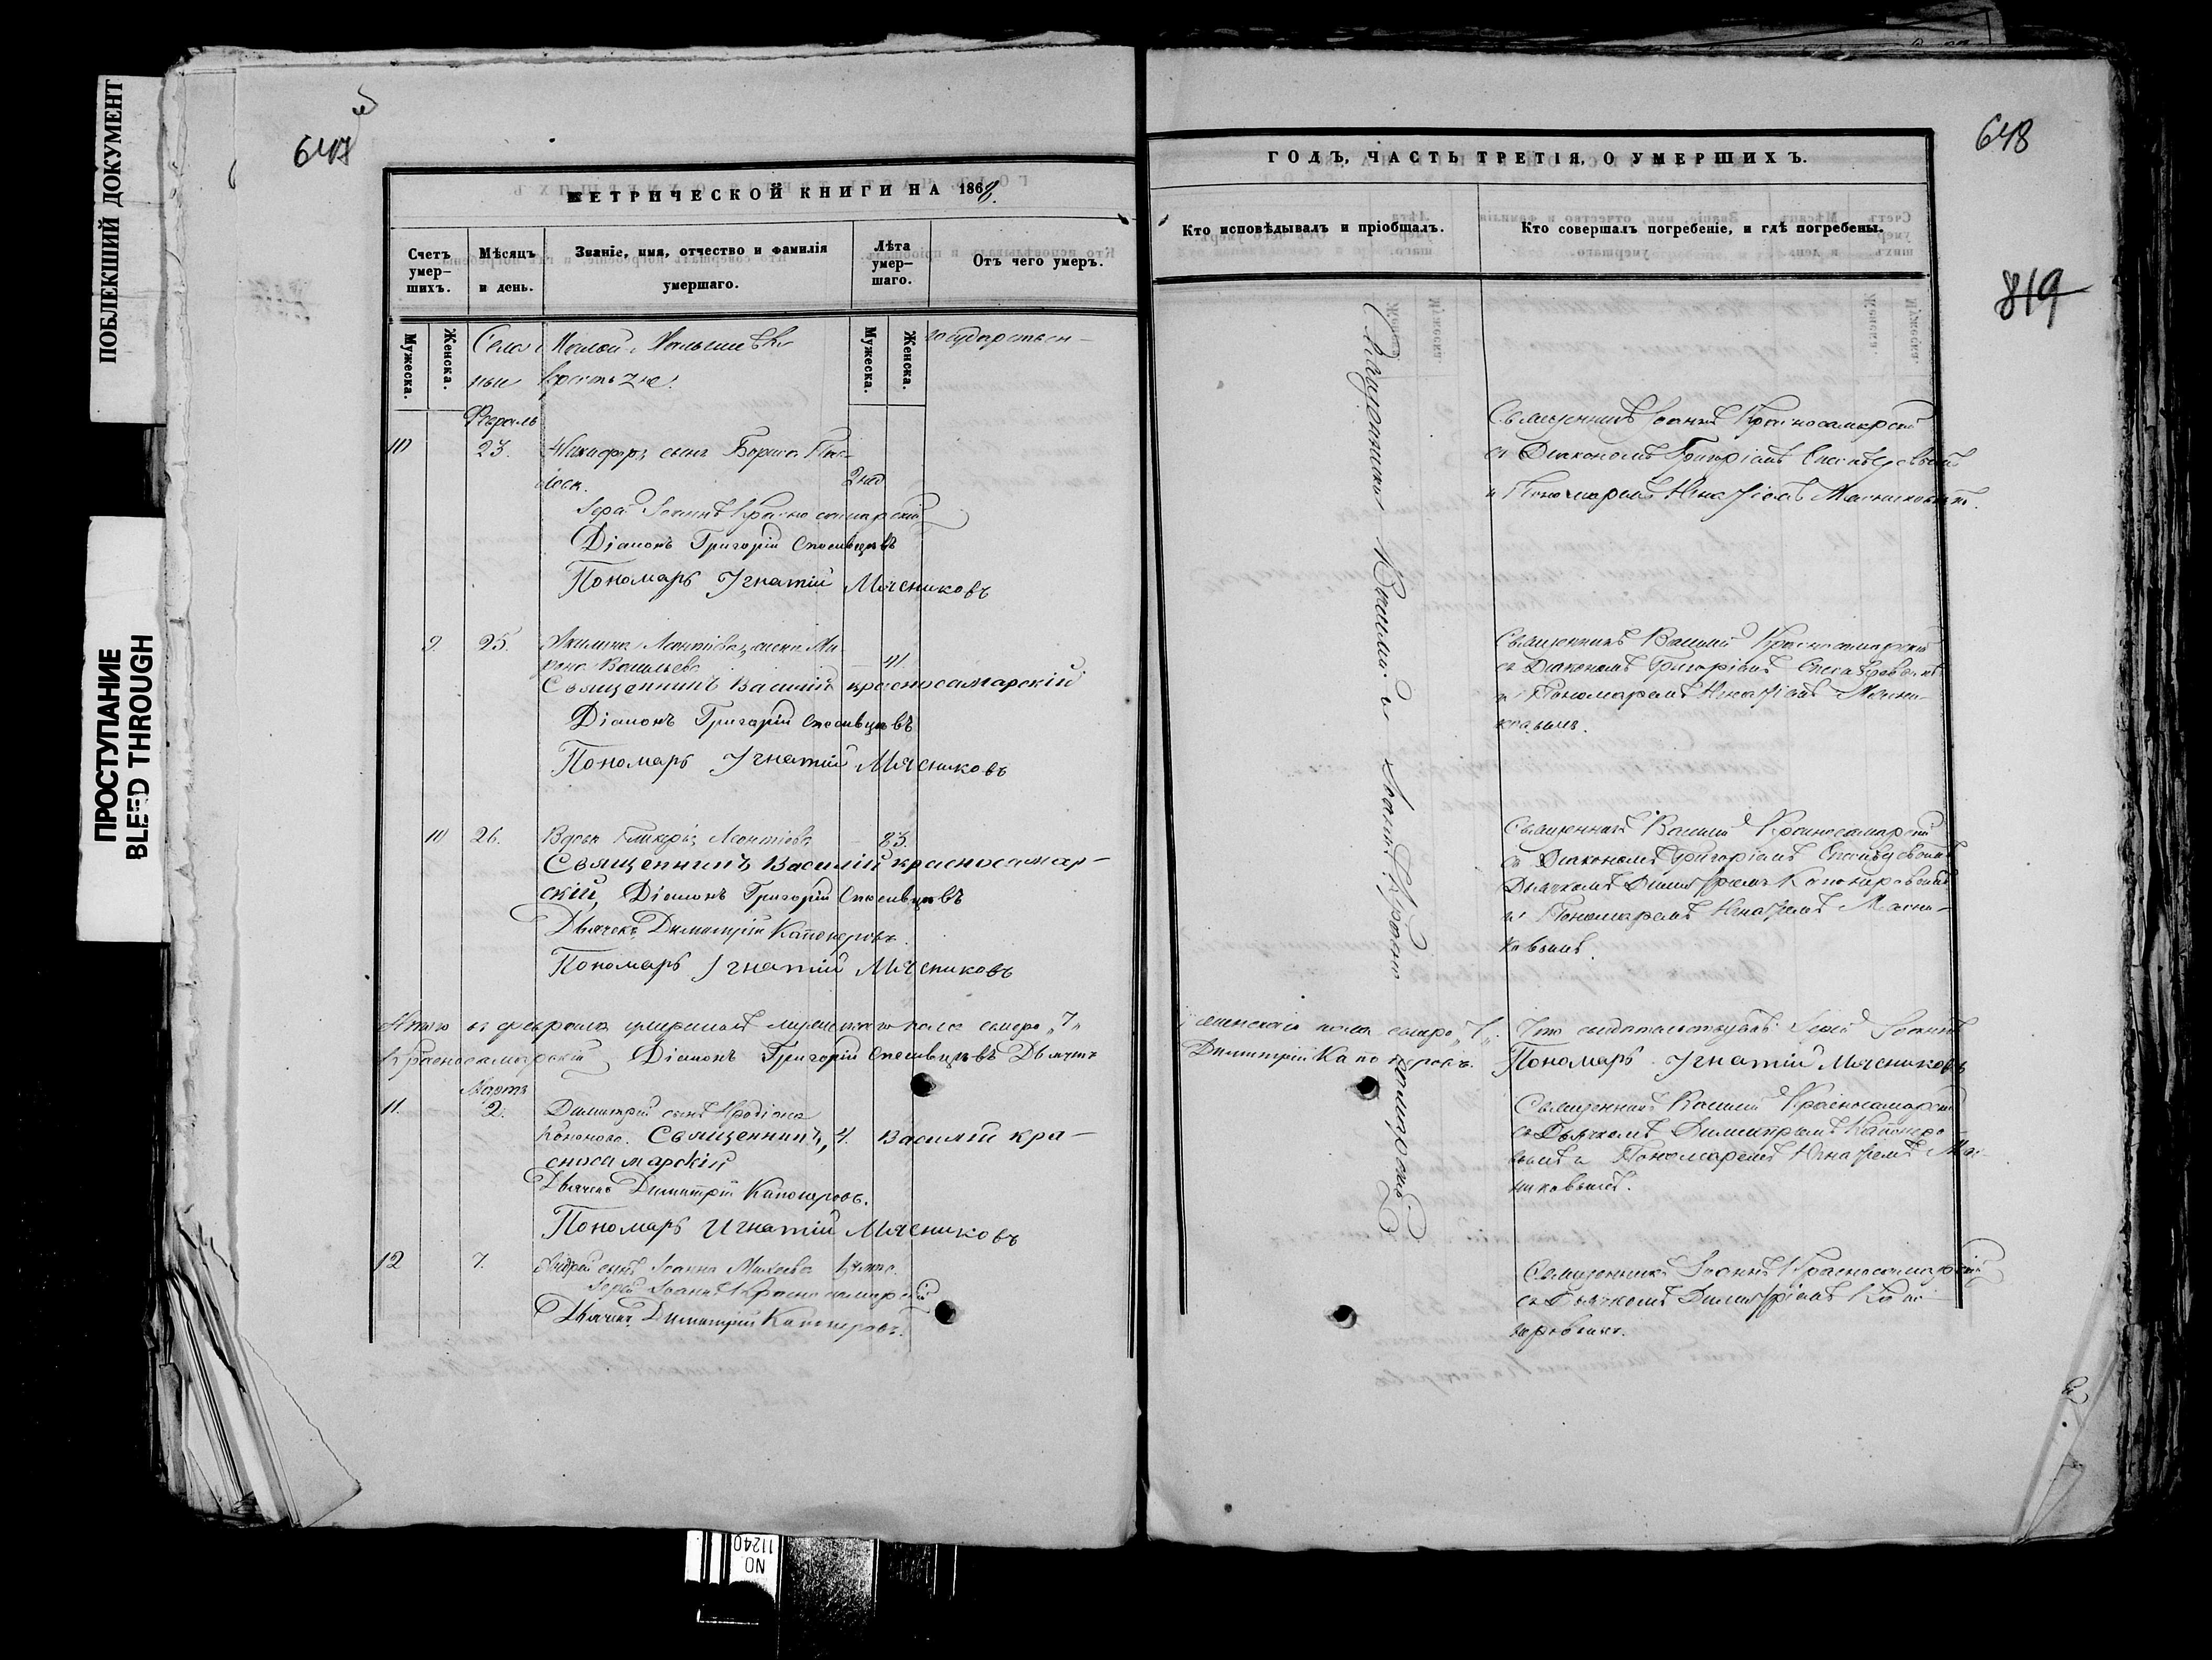 ПОБЛЕКШИЙ ДОКУМЕНТ
ПРОСТУПАНИЕ
BLEED THROUGH
647
МЕТРИЧЕСКОЙ КНИГИ НА 1868.
Счетъ умер-шихъ.
Мѣсяцъ и день.
Званіе, имя, отчество и фамилія умершаго.
Лѣта умер-шаго.
Отъ чего умеръ.
Мужеска.
Женска.
Мужеска.
Женска.
Села Малой Малышевки государствен-
ные крестьяне.
Февраль
10 23. Никифоръ сынъ Бориса
2 нед
Іерей Іоаннъ Красносамарскій
Діаконъ Григорій Спесивцевъ
Пономарь Игнатій Мясниковъ
9. 25. Акилина Леонтіева, жена Ми
рона Васильева 41
Священникъ Василій Красносамарскій
Діаконъ Григорій Спесивцевъ
Пономарь Игнатій Мясниковъ
10 26. Вдова Гликерія Леонтіева 83.
Священникъ Василій Красносамар-
скій, Діаконъ Григорій Спесивцевъ
Дьячекъ Димитрій Капонеровъ.
Пономарь Игнатій Мясниковъ
Итого въ февралѣ умершихъ мужескаго пола семеро „7„
Красносамарскій Діаконъ Григорій Спесивцевъ Дьячекъ
Мартъ
11. 2. Димитрій сынъ Иродіона
Кононова. Священникъ, 4. Василій Кра-
сносамарскій
Дьячекъ Димитрій Капонеровъ.
Пономарь Игнатій Мясниковъ
12 7. Андрей сынъ Іоанна Михеева
Іерей Іоаннъ Красносамарскій
Дьячекъ Димитрій Капонеровъ.
648
819
ГОДЪ, ЧАСТЬ ТРЕТІЯ, О УМЕРШИХЪ.
Кто исповѣдывалъ и пріобщалъ.
Кто совершалъ погребеніе, и гдѣ погребены.
Священники Василій и Іоаннъ Красносамарскіе
Священникъ Іоаннъ Красносамарскій
съ Діакономъ Григоріемъ Спесивцевымъ
и Пономаремъ Игнатіемъ Мясниковымъ.
Священникъ Василій Красносамарскій
съ Діакономъ Григоріемъ Спесивцевымъ
и Пономаремъ Игнатіемъ Мясни-
ковымъ.
Священникъ Василій Красносамарскій
съ Діакономъ Григоріемъ Спесивцевымъ
Дьячкомъ Димитріемъ Капонеровымъ
и Пономаремъ Игнатіемъ Мясни-
ковымъ.
женскаго пола семеро „7„. Что свидѣтельствуемъ Іерей Іоаннъ
Димитрій Капонеровъ. Пономарь Игнатій Мясниковъ
Священникъ Василій Красносамарскій
съ Дьячкомъ Димитріемъ Капонеро-
вымъ и Пономаремъ Игнатіемъ Мяс-
никовымъ.
Священникъ Іоаннъ Красносамарскій
съ Дьячкомъ Димитріемъ Капо-
неровымъ.
NO
11240